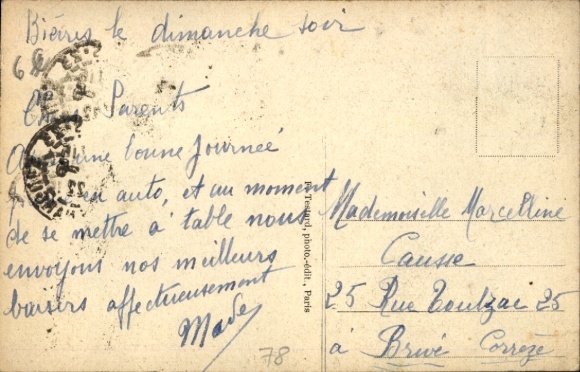 Bières le dimanche soir
Parents
une bonne journée
en auto, et au moment
de se mettre à table nous
envoyons nos meilleurs
baisers affectueusement
Made
78
Testard, photo.-édit., Paris
Mademoiselle Marcelline
Causse
25 Rue Toulzac 25
à Brive Corrèze